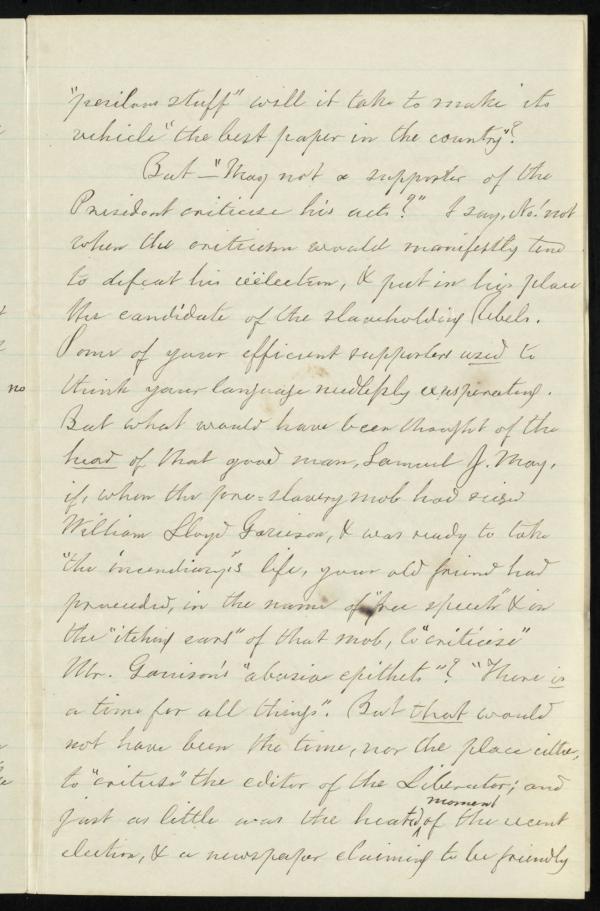 "perilous stuff" will it take to make its
vehicle "the best paper in the country"?
But — "May not a supporter of the
President criticise his acts?" I say, No! not
when the criticism would manifestly tend
to defeat his reëlection, & put in his place
the candidate of the slaveholding Rebels.
Some of your efficient supporters used to
think your language needlessly exasperating.
But what would have been thought of the
head of that good man, Samuel J. May,
if, when the pro=slavery mob had seized
William Lloyd Garrison, & was ready to take
"the incendiary's" life, your old friend had
proceeded, in the name of "free speech" & in
the "itching ears" of that mob, to "criticise"
Mr. Garrison's "abusive epithets"? "There is
a time for all things". But that would
not have been the time, nor the place either,
to "criticise" the editor of the Liberator; and
just as little was the heated moment of the recent
election, & a newspaper claiming to be friendly
no